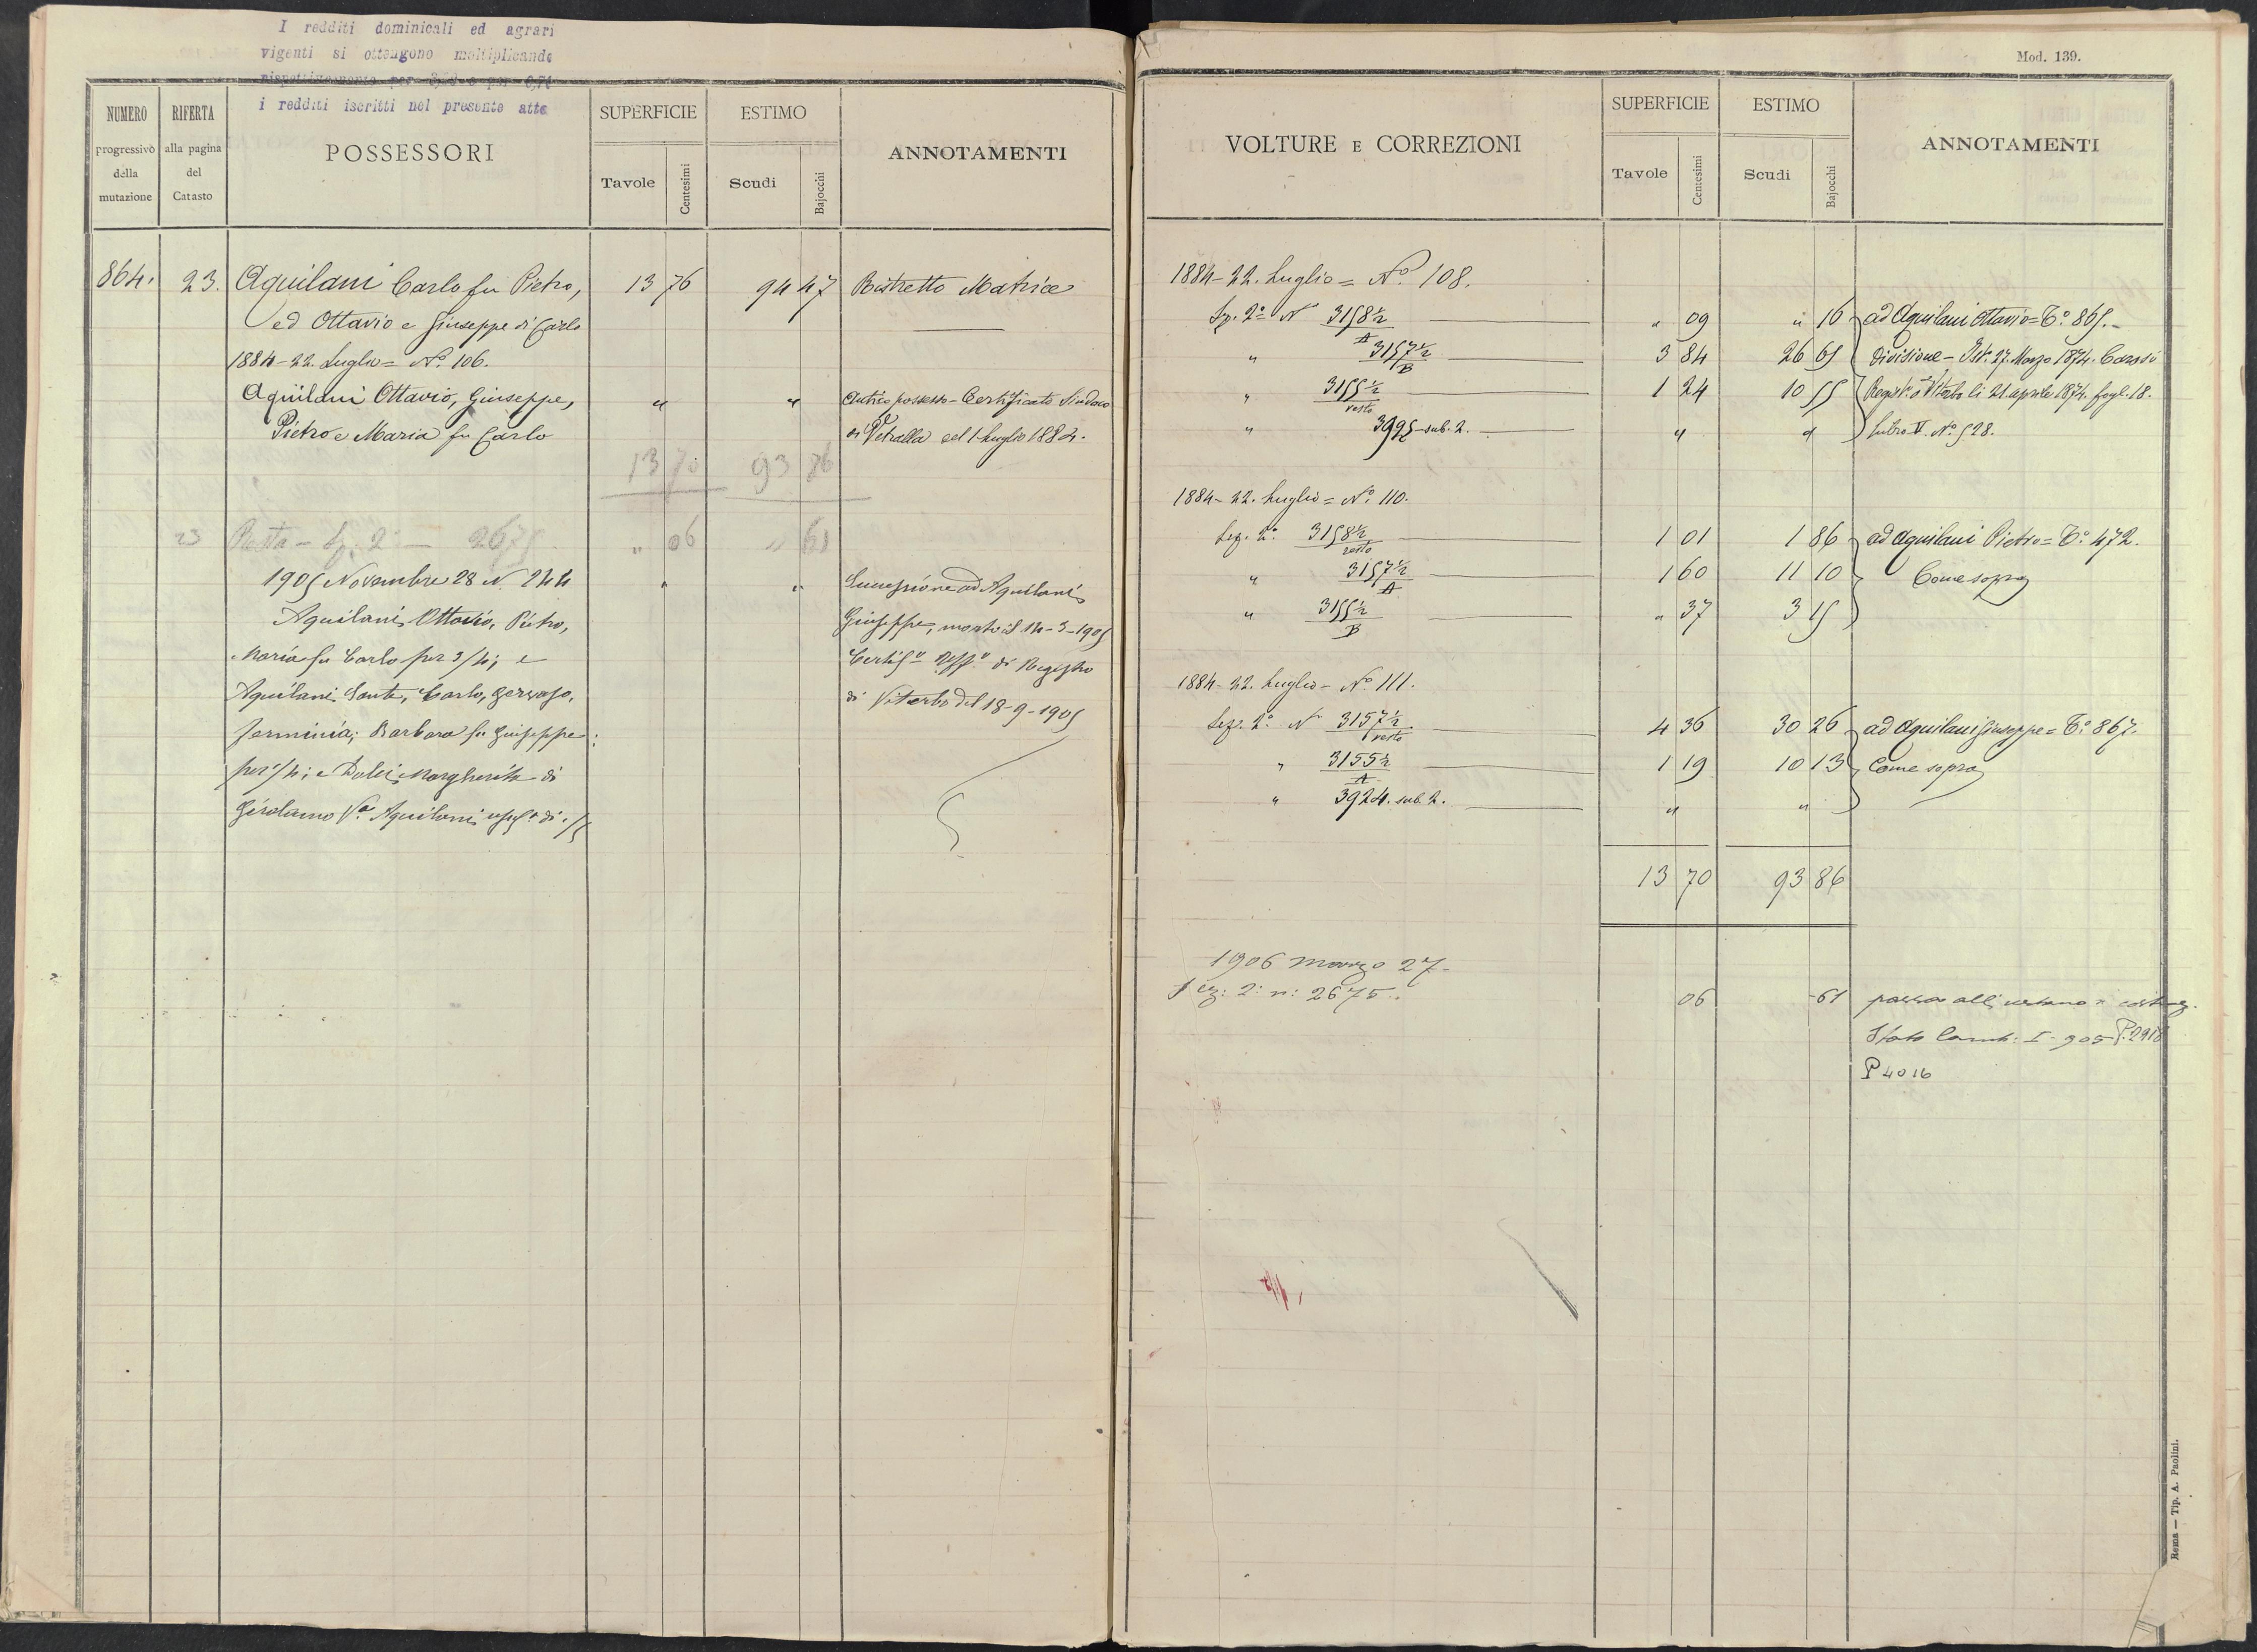 I redditi dominicali ed agrari
vigenti si ottengono moltiplicando
rispettivamente per
i redditi iscritti nel presente atto
NUMERO progressivo della mutazione
RIFERTA alla pagina del Catasto
POSSESSORI
SUPERFICIE
Tavole Centesimi
ESTIMO
Scudi Bajocchi
ANNOTAMENTI
864. 23. Aquilani Carlo fu Pietro, 13 76 94 47 Ristretto Matrice
ed Ottavio e Giuseppe di Carlo
1884-22. Luglio = N° 106.
Aquilani Ottavio, Giuseppe, " " Antico possesso - Certificato Sindaco
Pietro e Maria fu Carlo di Vetralla del 1 Luglio 1884.
13 70 93 86
23 Resta - Sez. 2ª - 2675 " 06 " 61
1905 Novembre 28 N. 244 " " Successione ad Aquilani
Aquilani Ottavio, Pietro, Giuseppe, morto il 14-3-1905
Maria fu Carlo per 3/4; e Certif° Uff° di Registro
Aquilani Sante, Carlo, Gervaso, di Viterbo del 18-9-1905
Barbara fu Giuseppe
per 1/4; e Dolci Margherita di
Girolamo Va Aquilani usufa di 1/5
Mod. 139.
VOLTURE E CORREZIONI
SUPERFICIE
Tavole Centesimi
ESTIMO
Scudi Bajocchi
ANNOTAMENTI
1884-22. Luglio = N° 108.
Sez. 2ª N° 3158 1/2 A " 09 " 16 ad Aquilani Ottavio = T° 865.
" 3157 1/2 B 3 84 26 65 Divisione - Ist. 27. Marzo 1874.
" 3155 1/2 resto 1 24 10 55 Regist. a Viterbo li 21 aprile 1874. fogl. 18.
" 3995 sub. 2. " " Libro V. N° 528.
1884-22. Luglio = N° 110.
Sez. 2ª 3158 1/2 resto 1 01 1 86 ad Aquilani Pietro = T° 472.
" 3157 1/2 A 1 60 11 10 Come sopra
" 3155 1/2 B " 37 3 15
1884-22. Luglio - N° 111.
Sez. 2ª N° 3157 1/2 resto 4 36 30 26 ad Aquilani Giuseppe = T° 867.
" 3155 1/2 A 1 19 10 13 Come sopra
" 3924. sub. 2. " "
13 70 93 86
1906 marzo 27
Sez: 2ª n: 2675 06 -61 passa all'urbano
Stato Camb: I- 905 P. 2918
P 4016
Roma — Tip. A. Paolini.